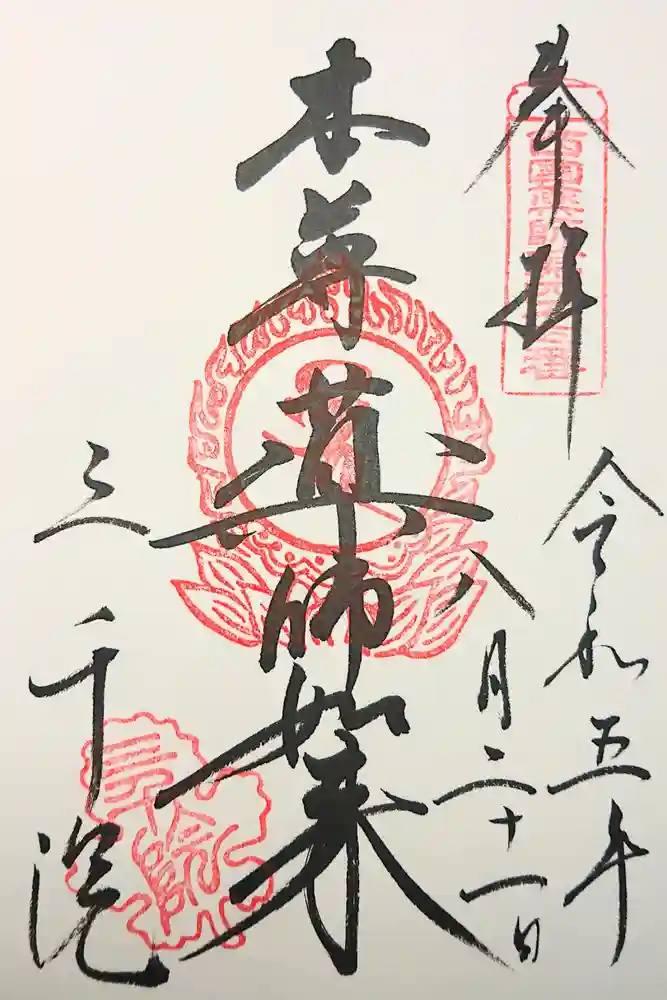 奉拝
令和五年
八月二十一日
本尊薬師如来
三千院